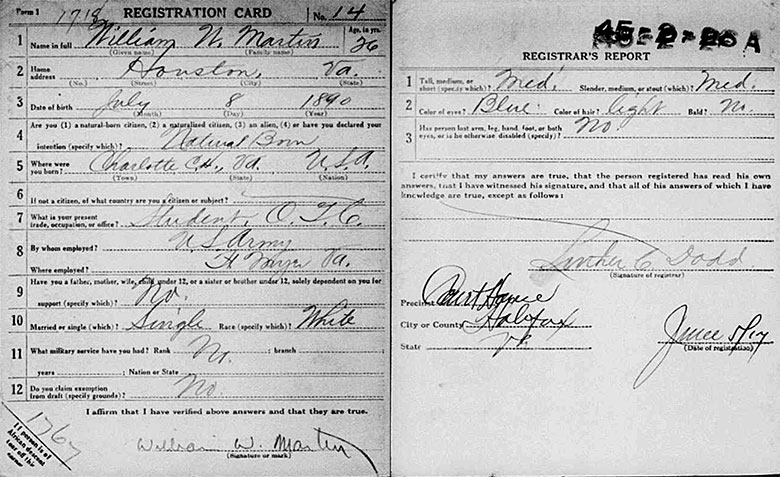 Form 1 1718 REGISTRATION CARD No. 14
1 Name in full William W. Martin Age, in yrs. 26
(Given name) (Family name)
2 Home address Houston, Va.
(No.) (Street) (City) (State)
3 Date of birth July 8 1890
(Month) (Day) (Year)
4 Are you (1) a natural-born citizen, (2) a naturalized citizen, (3) an alien, (4) or have you declared your
intention (specify which)? Natural Born
5 Where were you born? Charlotte C.H., Va. U.S.A.
(Town) (State) (Nation)
6 If not a citizen, of what country are you a citizen or subject?
7 What is your present trade, occupation, or office? Student, O.T.C.
8 By whom employed? U S Army
Where employed? Ft Myer Va.
9 Have you a father, mother, wife, child under 12, or a sister or brother under 12, solely dependent on you for
support (specify which)? No.
10 Married or single (which)? Single Race (specify which)? White
11 What military service have you had? Rank No. ; branch ;
years ; Nation or State
12 Do you claim exemption from draft (specify grounds)? No
I affirm that I have verified above answers and that they are true.
William W. Martin
(Signature or mark)
1767
If person is of
African descent
tear off this
corner
45-2-26 A
REGISTRAR'S REPORT
1 Tall, medium, or short (specify which)? Med. Slender, medium, or stout (which)? Med.
2 Color of eyes? Blue. Color of hair? light Bald? No.
3 Has person lost arm, leg, hand, foot, or both
eyes, or is he otherwise disabled (specify)? No.
I certify that my answers are true, that the person registered has read his own
answers, that I have witnessed his signature, and that all of his answers of which I have
knowledge are true, except as follows:
Luther C. Dodd
(Signature of registrar)
Precinct Court House
City or County Halifax
State Va.
June 5/17
(Date of registration)